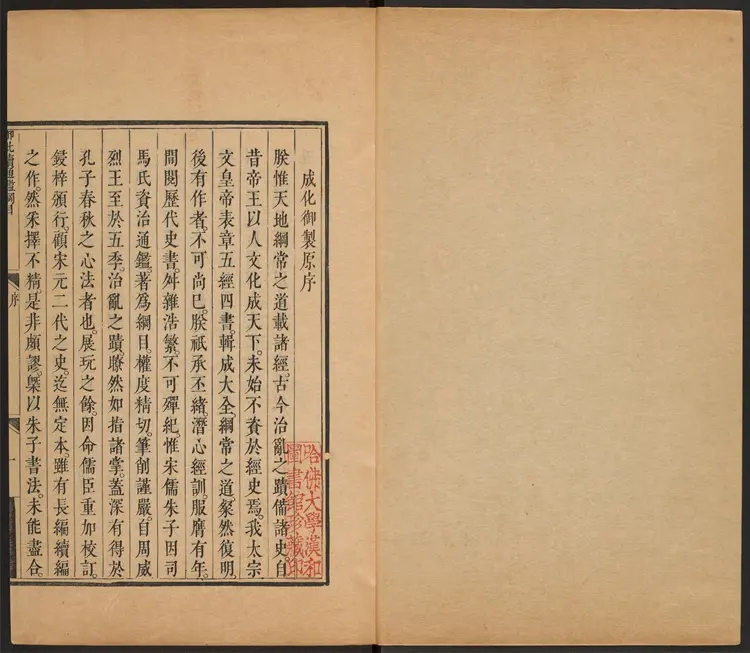 成化御製原序
朕惟天地綱常之道載諸經。古今治亂之蹟備諸史。自
昔帝王以人文化成天下。未始不資於經史焉。我太宗
文皇帝表章五經四書。輯成大全。綱常之道粲然復明。
後有作者。不可尚巳。朕祇承丕緒。潛心經訓。服膺有年。
間閱歷代史書。舛雜浩繁。不可殫紀。惟宋儒朱子因司
馬氏資治通鑑。著爲綱目。權度精切。筆削謹嚴。自周威
烈王至於五季。治亂之蹟。瞭然如指諸掌。蓋深有得於
孔子春秋之心法者也。展玩之餘。因命儒臣重加校訂。
鋟梓頒行。顧宋元二代之史。迄無定本。雖有長編續編
之作。然采擇不精。是非頗謬。槩以朱子書法。未能盡合。
御批續通鑑綱目
序
一
哈佛大學漢和
圖書館珍藏印